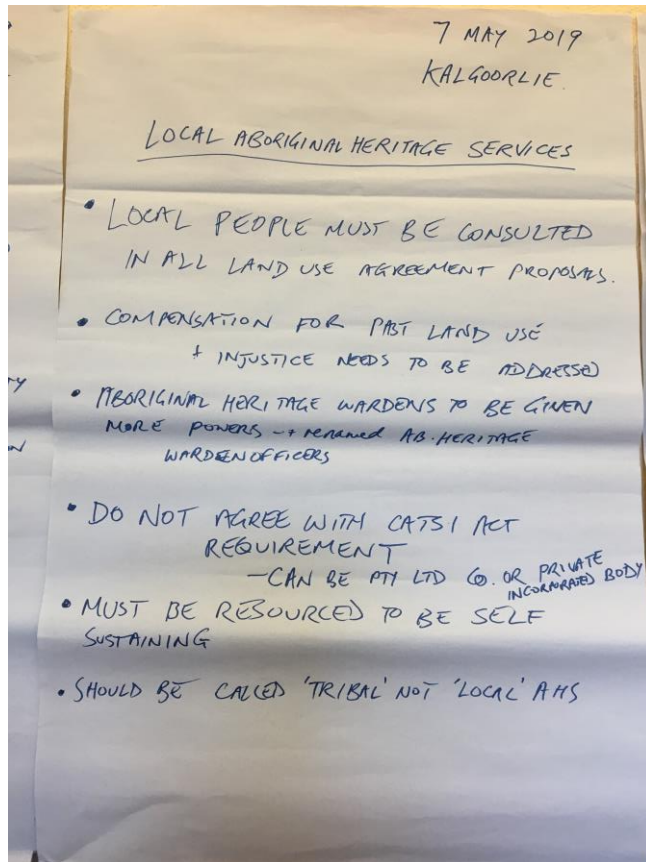 7 MAY 2019
KALGOORLIE.
LOCAL ABORIGINAL HERITAGE SERVICES
• LOCAL PEOPLE MUST BE CONSULTED
IN ALL LAND USE AGREEMENT PROPOSALS.
• COMPENSATION FOR PAST LAND USE
+ INJUSTICE NEEDS TO BE ADDRESSED
• ABORIGINAL HERITAGE WARDENS TO BE GIVEN
MORE POWERS -+ renamed AB. HERITAGE
WARDEN OFFICERS
• DO NOT AGREE WITH CATSI ACT
REQUIREMENT
- CAN BE PTY LTD CO. OR PRIVATE
INCORPORATED BODY
• MUST BE RESOURCED TO BE SELF
SUSTAINING
• SHOULD BE CALLED 'TRIBAL' NOT 'LOCAL' AHS